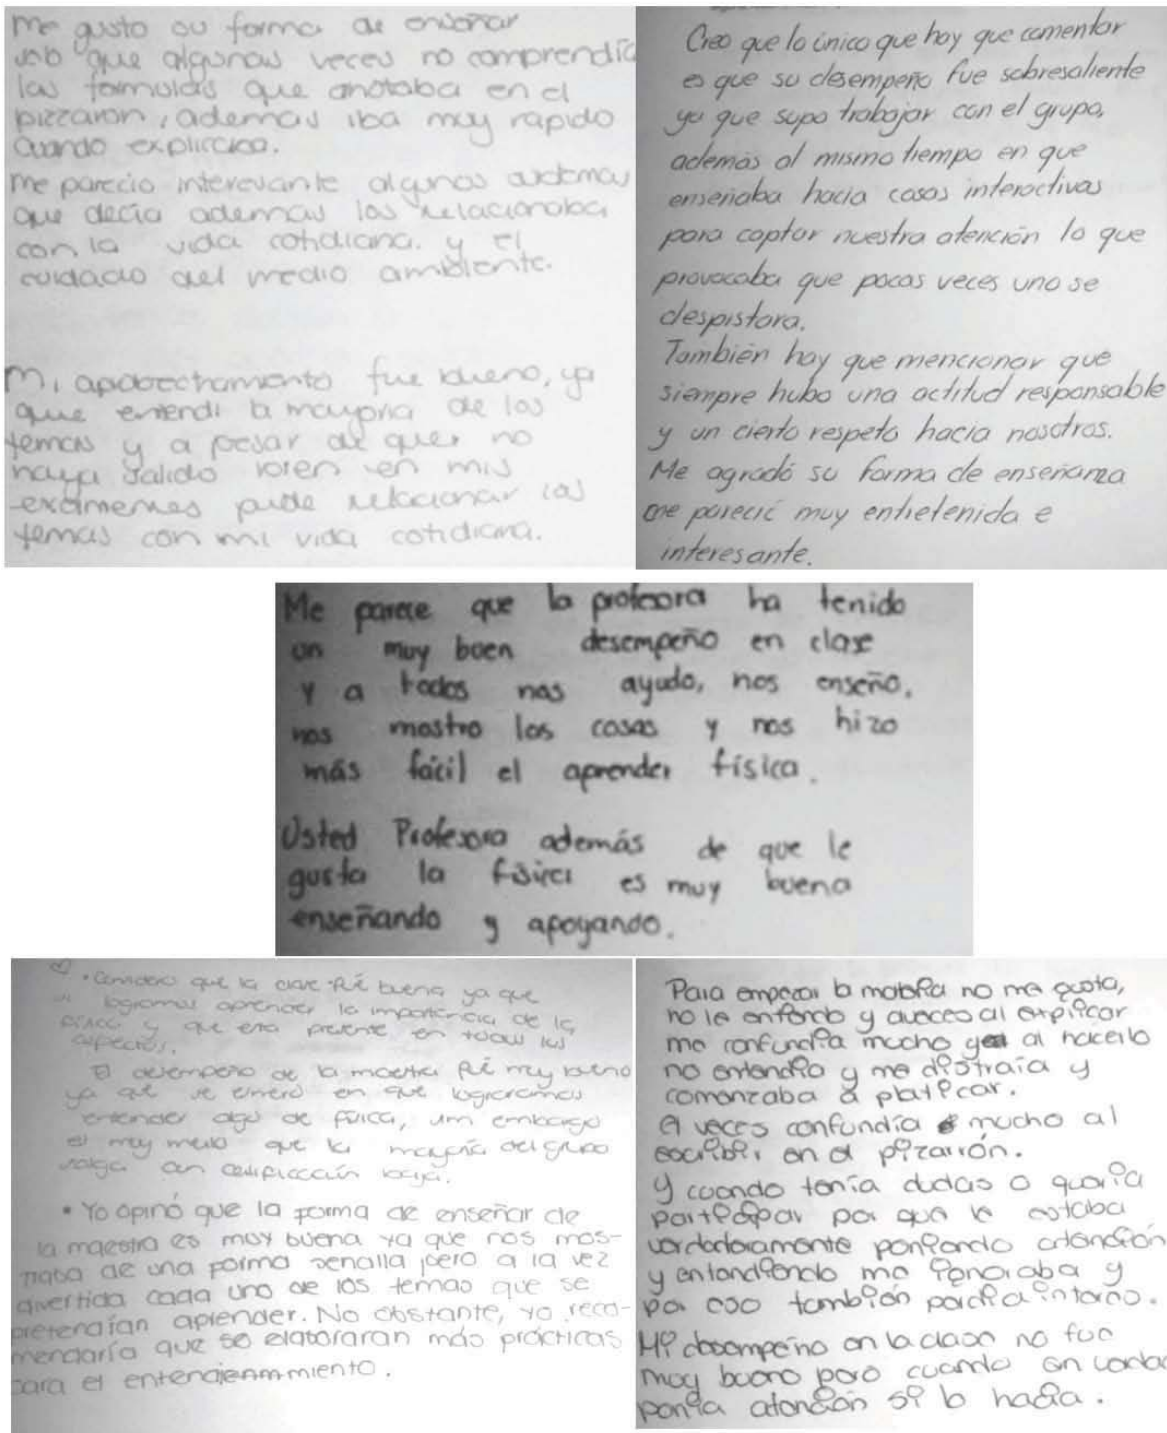 Me gusto su forma de enseñar
solo que algunas veces no comprendía
las formulas que anotaba en el
pizzaron, ademas iba muy rapido
cuando explicaba.
Me parecio interesante algunos
que decía ademas los relacionaba
con la vida cotidiana. y el
cuidado del medio ambiente.
Mi aprobechamiento fue bueno, ya
que entendi la mayoria de los
temas y a pesar de que no
haya salido bien en mis
exámenes pude relacionar los
temas con mi vida cotidiana.
Creo que lo único que hay que comentar
es que su desempeño fue sobresaliente
ya que supo trabajar con el grupo,
además al mismo tiempo en que
enseñaba hacia cosas interactivas
para captar nuestra atención lo que
provocaba que pocas veces uno se
despistara.
También hay que mencionar que
siempre hubo una actitud responsable
y un cierto respeto hacia nosotros.
Me agradó su forma de enseñanza
me pareció muy entretenida e
interesante.
Me parece que la profesora ha tenido
un muy buen desempeño en clase
y a todos nos ayudo, nos enseño,
nos mostro las cosas y nos hizo
más fácil el aprender física.
Usted Profesora además de que le
gusta la física es muy buena
enseñando y apoyando.
• Considero que la clase fué buena ya que
logramos aprender la importancia de la
física y que era presente en todos los
aspectos.
El desempeño de la maestra fué muy bueno
ya que se esmeró en que lograramos
entender algo de física, sin embargo
es muy malo que la mayoría del grupo
salga con calificación baja.
• Yo opinó que la forma de enseñar de
la maestra es muy buena ya que nos mos-
traba de una forma sencilla pero a la vez
divertida cada uno de los temas que se
pretendían aprender. No obstante, yo reco-
mendaría que se elaboraran más prácticas
para el
Para empezar la materia no me gusta,
no le entiendo y aveces al explicar
me confundía mucho y al hacerlo
no entendía y me distraía y
comenzaba a platicar.
A veces confundía mucho al
escribir en el pizarrón.
Y cuando tenía dudas o quería
participar por que le estaba
verdaderamente poniendo atención
y entendiendo me ignoraba y
por eso también perdía interés.
Mi desempeño en la clase no fue
muy bueno pero cuando en verdad
ponía atención si lo hacía.